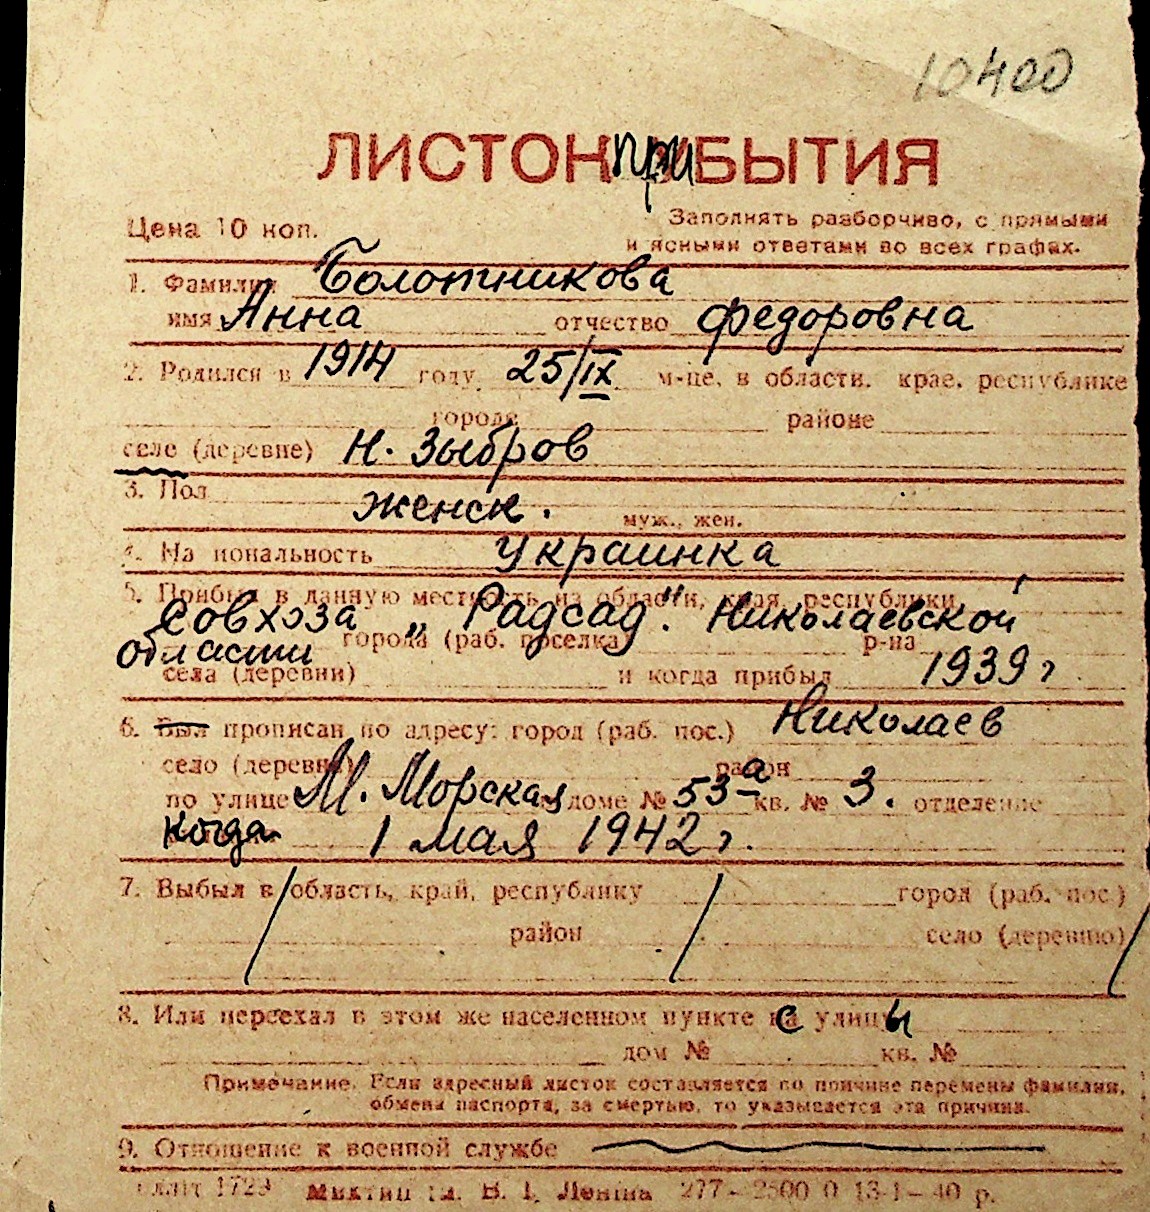 10400
ЛИСТОК приБЫТИЯ
Цена 10 коп.
Заполнять разборчиво, с прямыми
и ясными ответами во всех графах.
1. Фамилия Болотникова
имя Анна отчество Федоровна
2. Родился в 1914 году 25/IX м-це, в области, крае, республике
городе районе
селе (деревне) Н. Зыбров
3. Пол женск. муж., жен.
4. На иональность украинка
5. Прибыл в данную местность из области, края, республики
Совхоза „Радсад". Николаевской
области города (раб. поселка) р-на
села (деревни) и когда прибыл 1939 г
6. Был прописан по адресу: город (раб. пос.) Николаев
село (деревня) район
по улице М. Морская доме № 53а кв. № 3. отделение
когда 1 мая 1942 г.
7. Выбыл в область, край, республику город (раб. пос.)
район село (деревню)
8. Или переехал в этом же населенном пункте с улицы
дом № кв. №
Примечание. Если адресный листок составляется по причине перемены фамилии,
обмена паспорта, за смертью, то указывается эта причина.
9. Отношение к военной службе
1729 В. І. Леніна 277—2500 0 13-1—40 р.